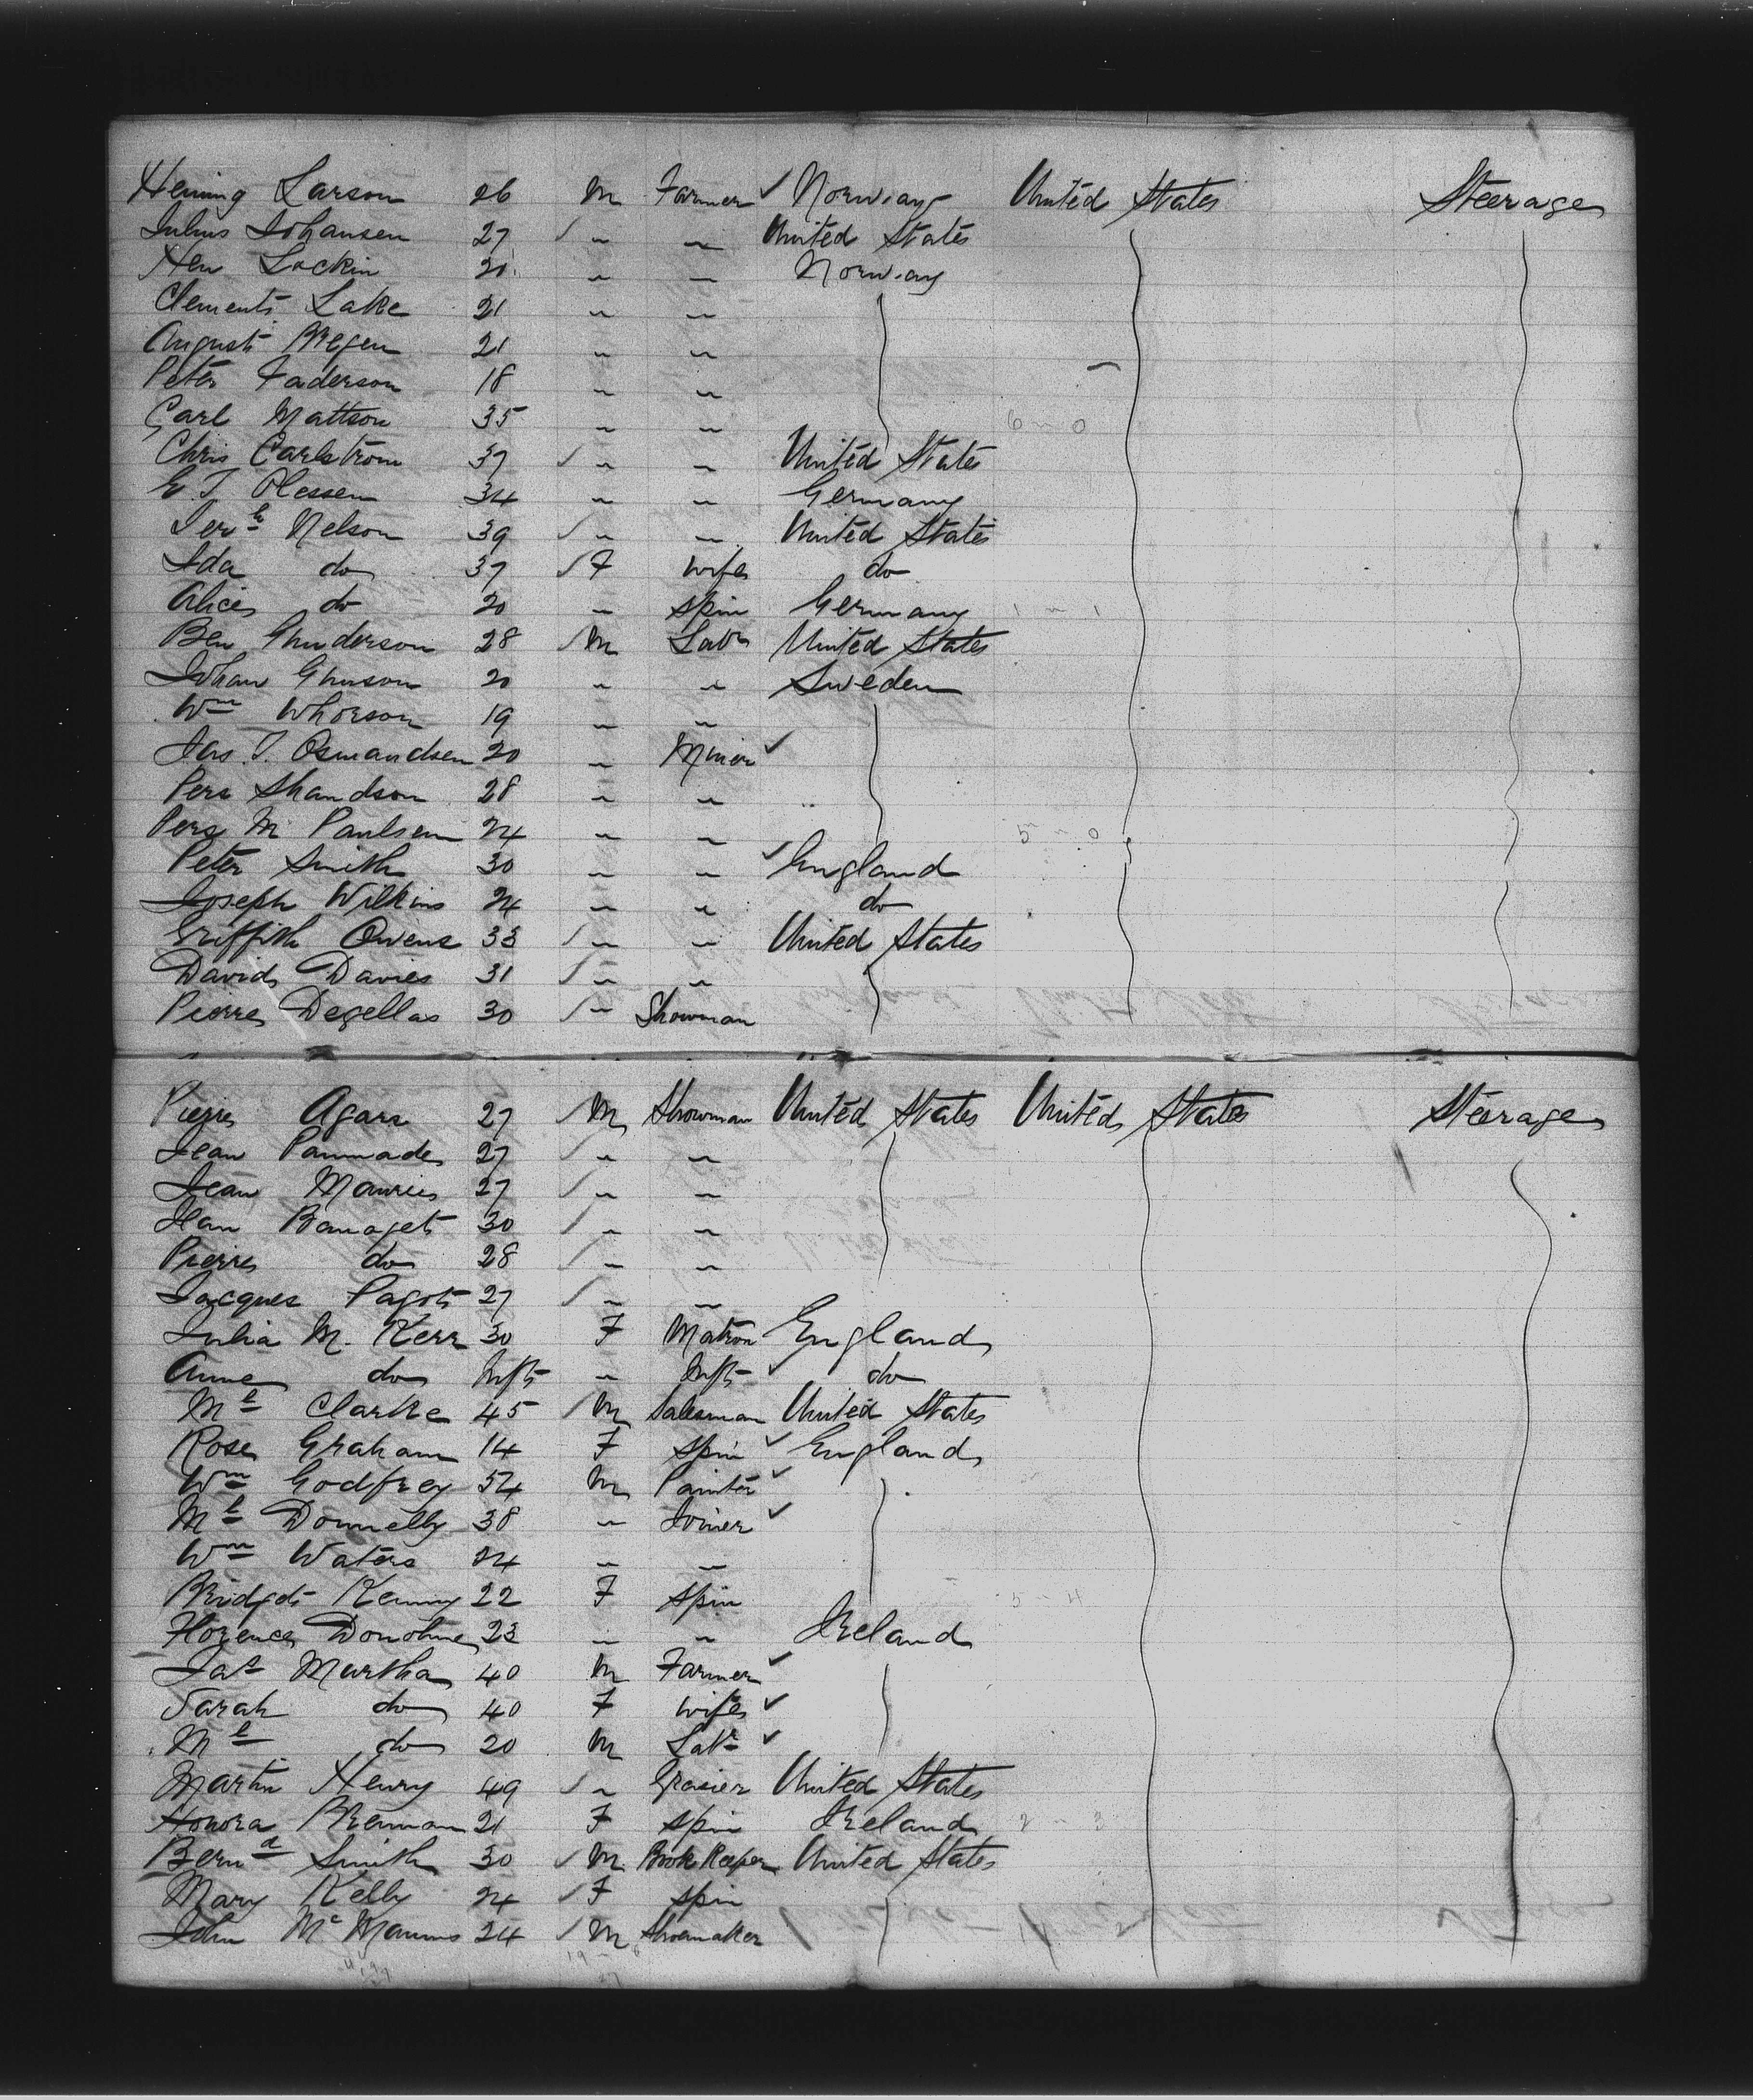 Hening Larson 26 M Farmer ✓ Norway United States Steerage
Julius Johansen 27 ✓ " " United States
Hen Lockin 20 " " Norway
Clement Lake 21 " "
August Bregen 21 " "
Peter Faderson 18 " "
Carl Mattson 35 " " 6 - 0
Chris Carlstrom 37 ✓ " " United States
E. T. Olessen 34 " " Germany
Jerh Nelson 39 ✓ " " United States
Ida do 37 ✓ F Wife do
Alice do 20 " Spin Germany 1 - 1
Ben Gunderson 28 ✓ M Labr United States
Johan Ghuson 20 " " Sweden
Wm Whorson 19 " "
Jas. T. Osmandsen 20 " Miner ✓
Pera Shandson 28 " "
Pera M Paulsen 24 " " 5 - 0
Peter Smith 30 " " ✓ England
Joseph Wilkins 24 " " do
Griffith Owens 33 ✓ " " United States
David Davies 31 ✓ " "
Pierre Degellas 30 ✓ " Showman
Pierre Agara 27 ✓ M Showman United States United States Steerage
Jean Pammade 27 ✓ " "
Jean Mauries 27 ✓ " "
Jean Banaget 30 ✓ " "
Pierre do 28 ✓ " "
Jacques Pagot 27 ✓ " "
Julia M. Kerr 30 F Matron England
Anne do Inft " Inft ✓ do
Ml Clarke 45 ✓ M Salesman United States
Rose Graham 14 F Spin ✓ England
Wm Godfrey 54 M Painter ✓
Ml Donnelly 38 " Joiner ✓
Wm Waters 24 " "
Bridget Kenny 22 F Spin 5 - 4
Florence Donohue 23 " " Ireland
Jas Murtha 40 M Farmer ✓
Sarah do 40 F Wife ✓
Ml do 20 M Labr ✓
Martin Henry 49 ✓ " Grasier United States
Honora Brennan 21 F Spin Ireland 2 - 3
Bernd Smith 30 ✓ M Book Keeper United States
Mary Kelly 24 ✓ F Spin
John McManus 24 ✓ M Shoemaker